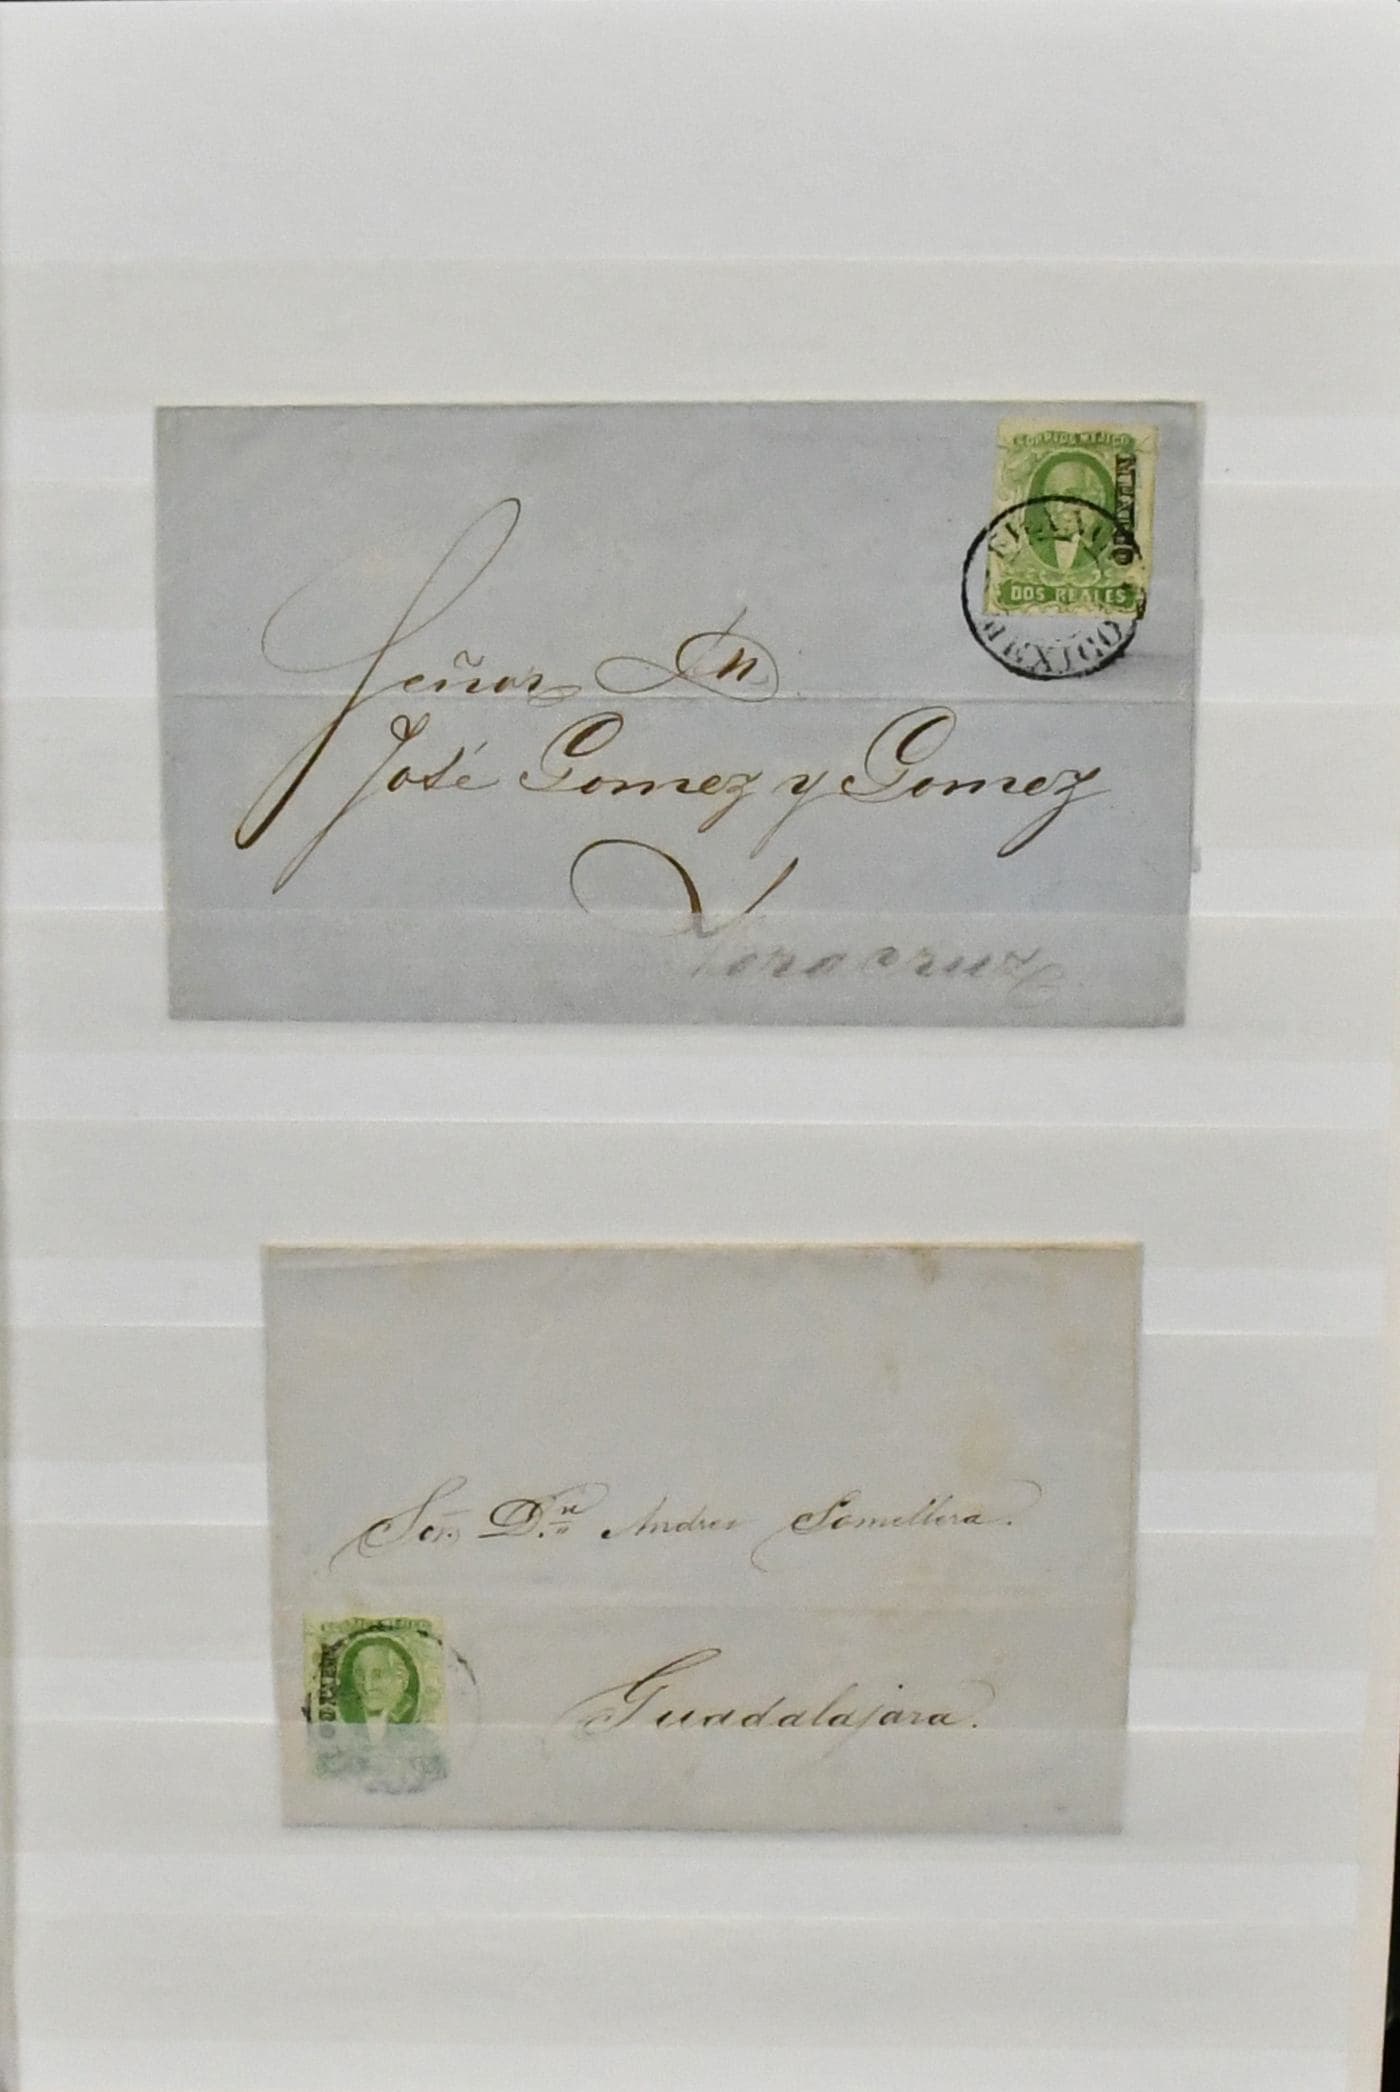 CORREOS MEJICO
MEXICO
FRANCO
MEXICO
DOS REALES
Señor Dn
José Gomez y Gomez
Veracruz
Sor. D.n Andres Somellera.
Guadalajara.